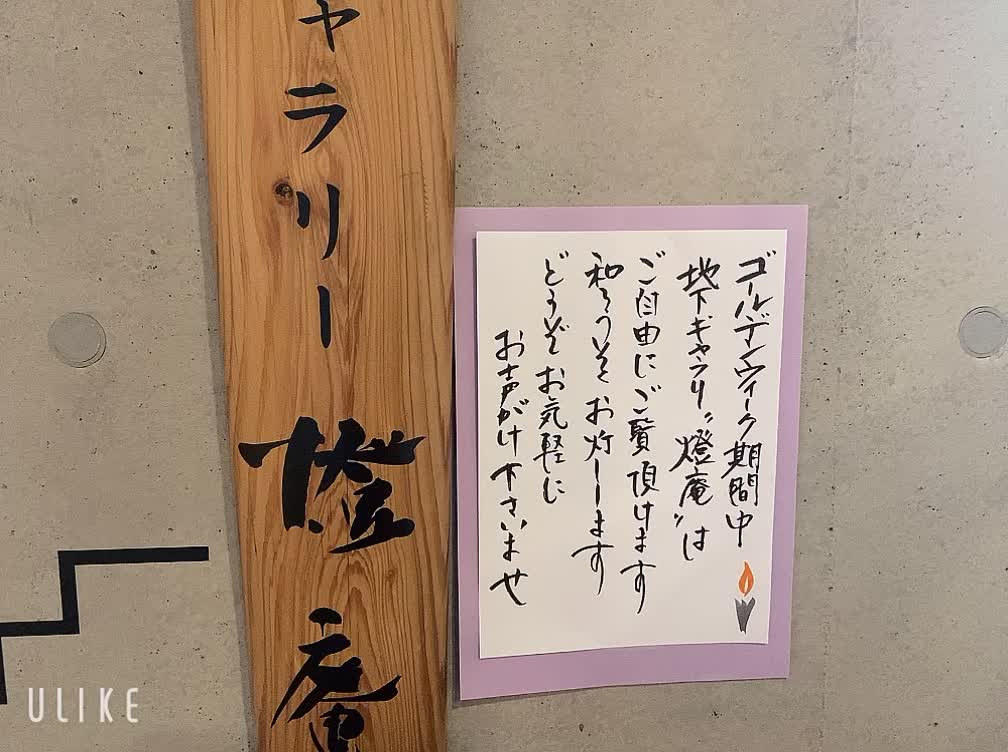 ャラリー燈庵
ゴールデンウィーク期間中
地下ギャラリー“燈庵”は
ご自由にご覧頂けます
和ろうそくお灯しします
どうぞお気軽に
お声がけ下さいませ
ULIKE